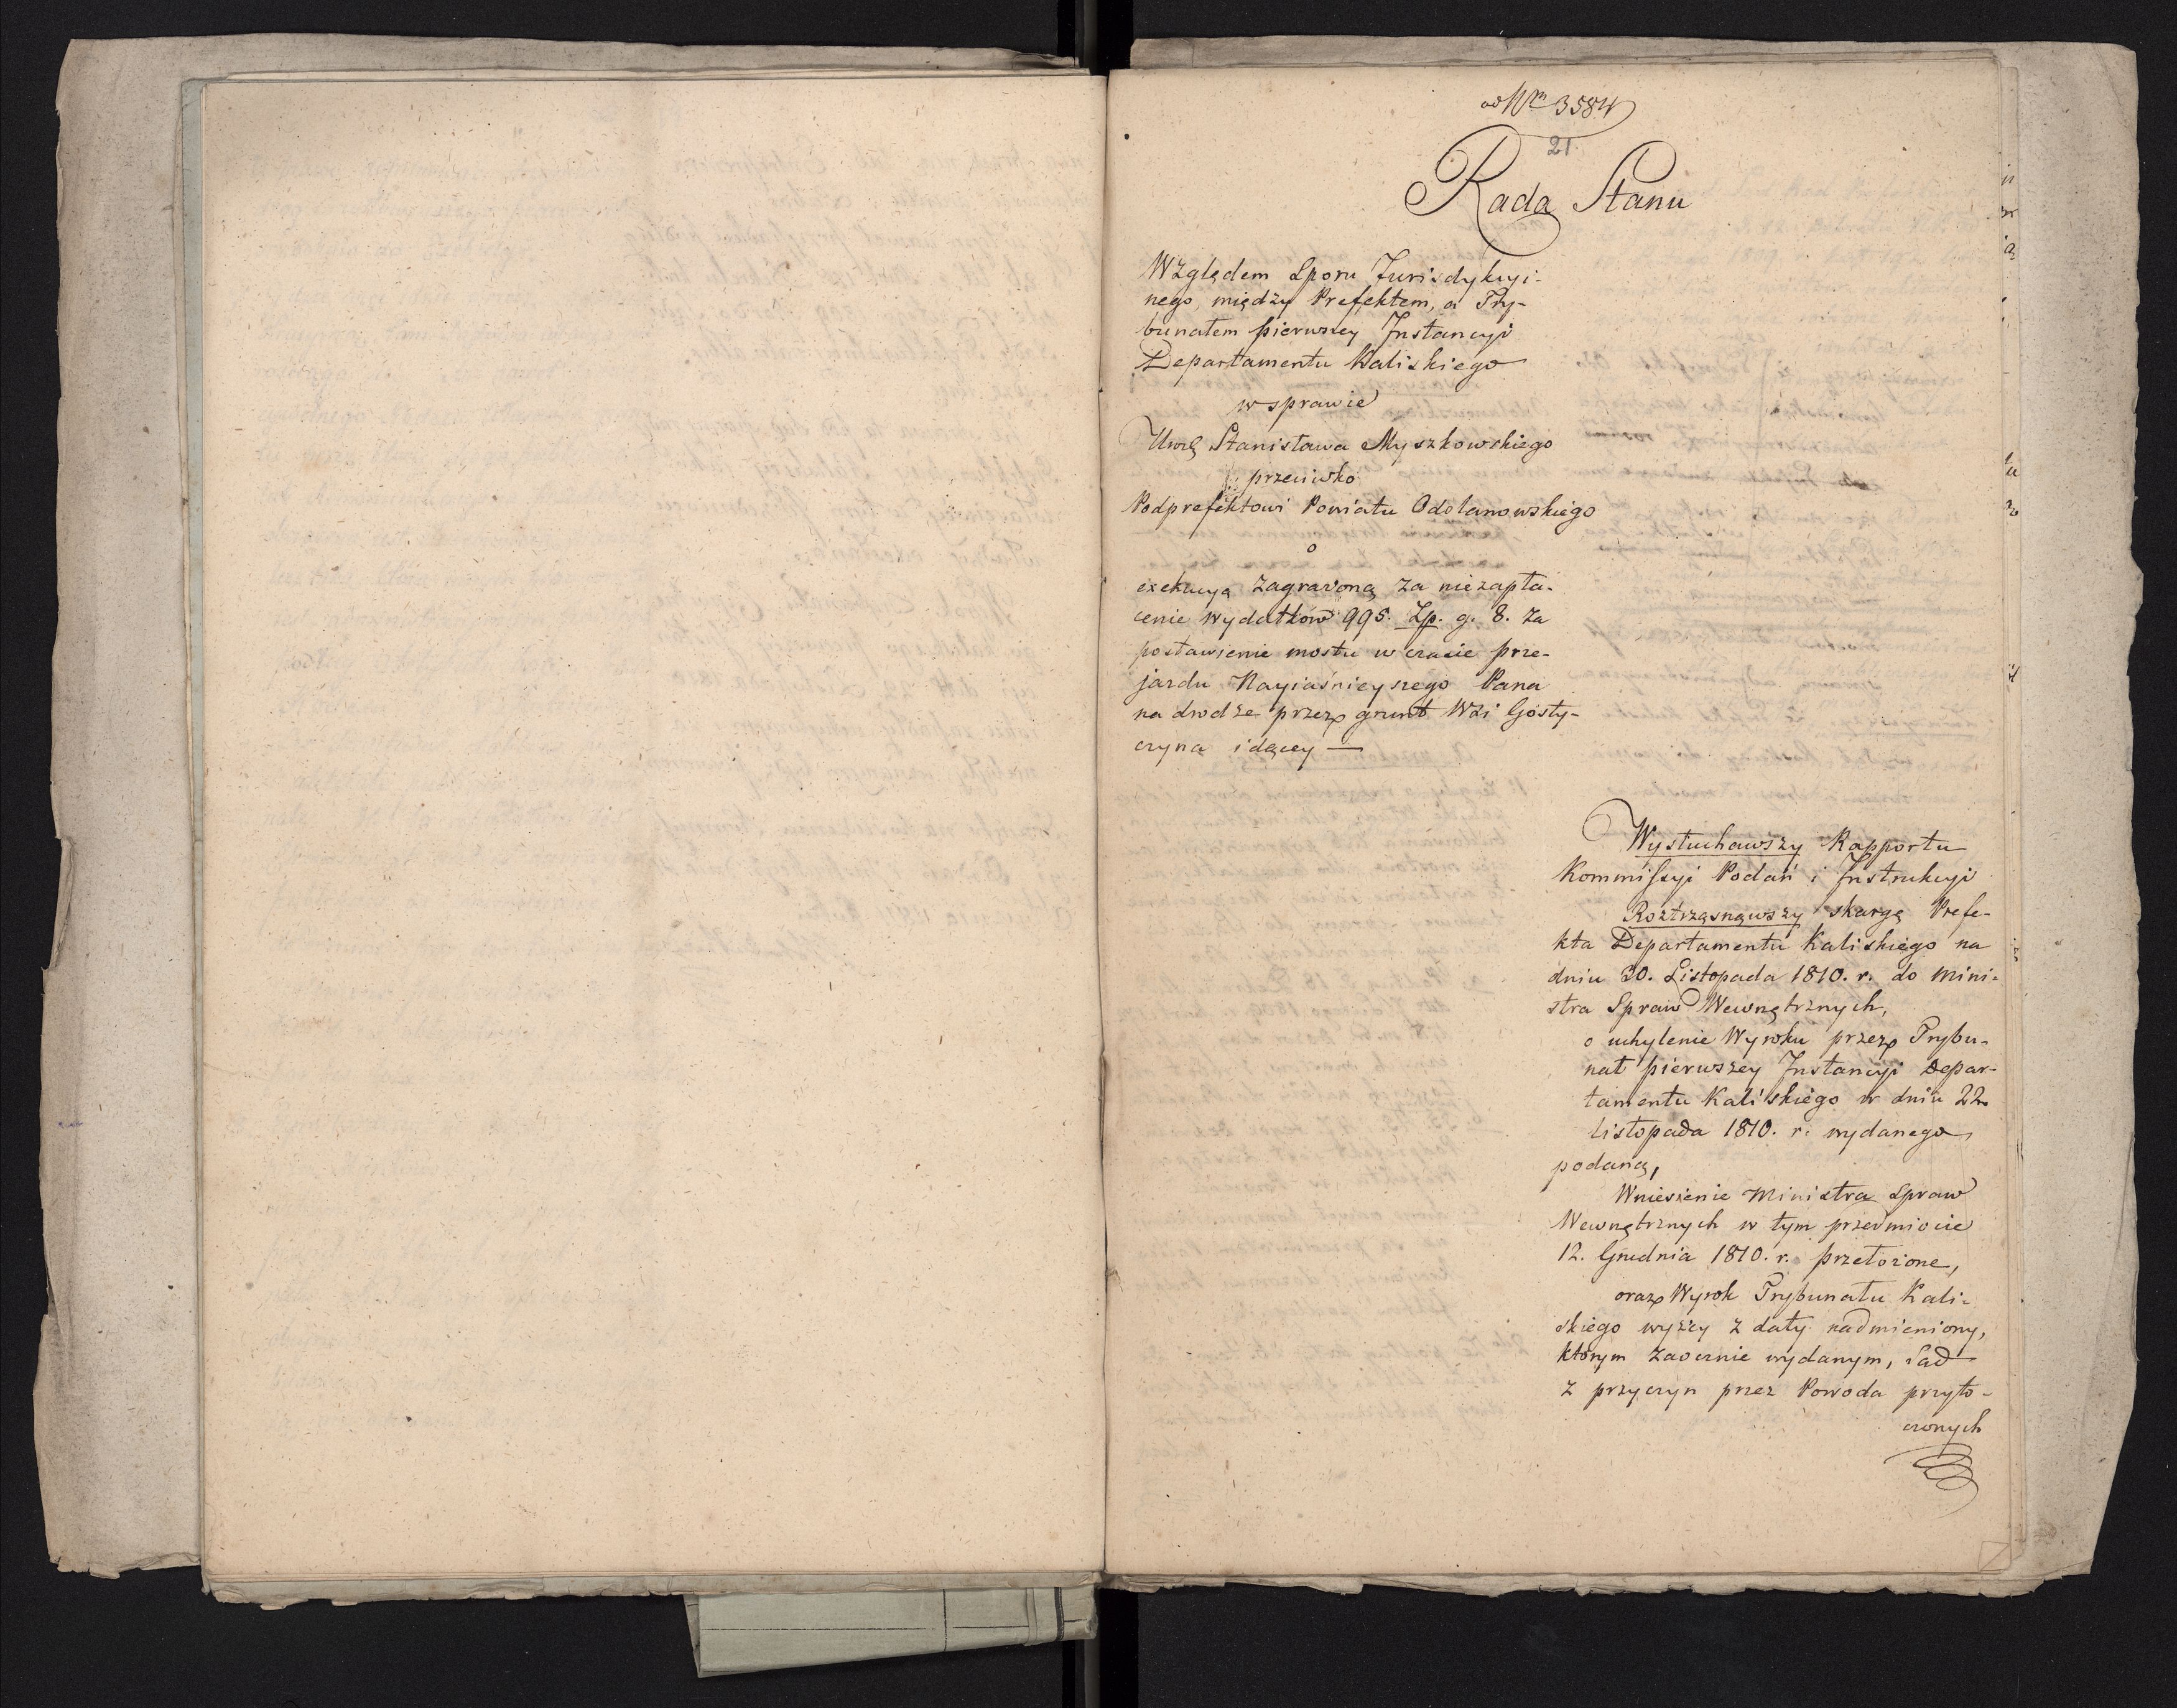 ad Nm 3584
21
Rada Stanu
Względem Sporu Jurisdykcyi-
nego, między Prefektem, a Try-
bunałem pierwszey Instancyi
Departamentu Kaliskiego
w sprawie
Ur. Stanisława Myszkowskiego
przeciwko
Podprefektowi Powiatu Odolanowskiego
o
exekucyą zagrażoną za niezapła-
cenie wydatków 995. Zp. g. 8. za
postawienie mostu w czasie prze-
jazdu Nayiaśnieyszego Pana
na drodze przez grunt Wsi Gosty-
czyna idącey —
Wysłuchawszy Rapportu
Kommissyi Podań i Instrukcyi
Roztrząsnąwszy skargę Prefe-
kta Departamentu Kaliskiego na
dniu 30. Listopada 1810. r. do Mini-
stra Spraw Wewnętrznych,
o uchylenie Wyroku przez Trybu-
nał pierwszey Instancyi Depar-
tamentu Kaliskiego w dniu 22
listopada 1810. r. wydanego,
podaną,
Wniesienie Ministra Spraw
Wewnętrznych w tym przedmiocie
12. Grudnia 1810. r. przełożone,
oraz Wyrok Trybunału Kali-
skiego wyżey z daty nadmieniony,
którym zaocznie wydanym, Sąd
z przyczyn przez Powoda przyto-
czonych